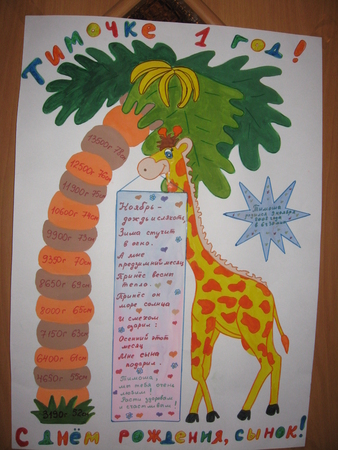 Тимочке 1 год!
13500г 78см
12500г 76см
11900г 75см
10600г 74см
9900г 73см
9350г 70см
8650г 69см
8000г 65см
7150г 63см
6400г 61см
4650г 55см
3190г 52см
Ноябрь -
дождь и слякоть,
Зима стучит
в окно.
А мне
предзимний месяц
Принёс весны
тепло.
Принёс он
море солнца
И смехом
озарил:
Осенний этот
месяц
Мне сына
подарил.
Тимоша,
мы тебя очень
любим!
Расти здоровым
и счастливым!
Тимоша
С днём рождения, сынок!